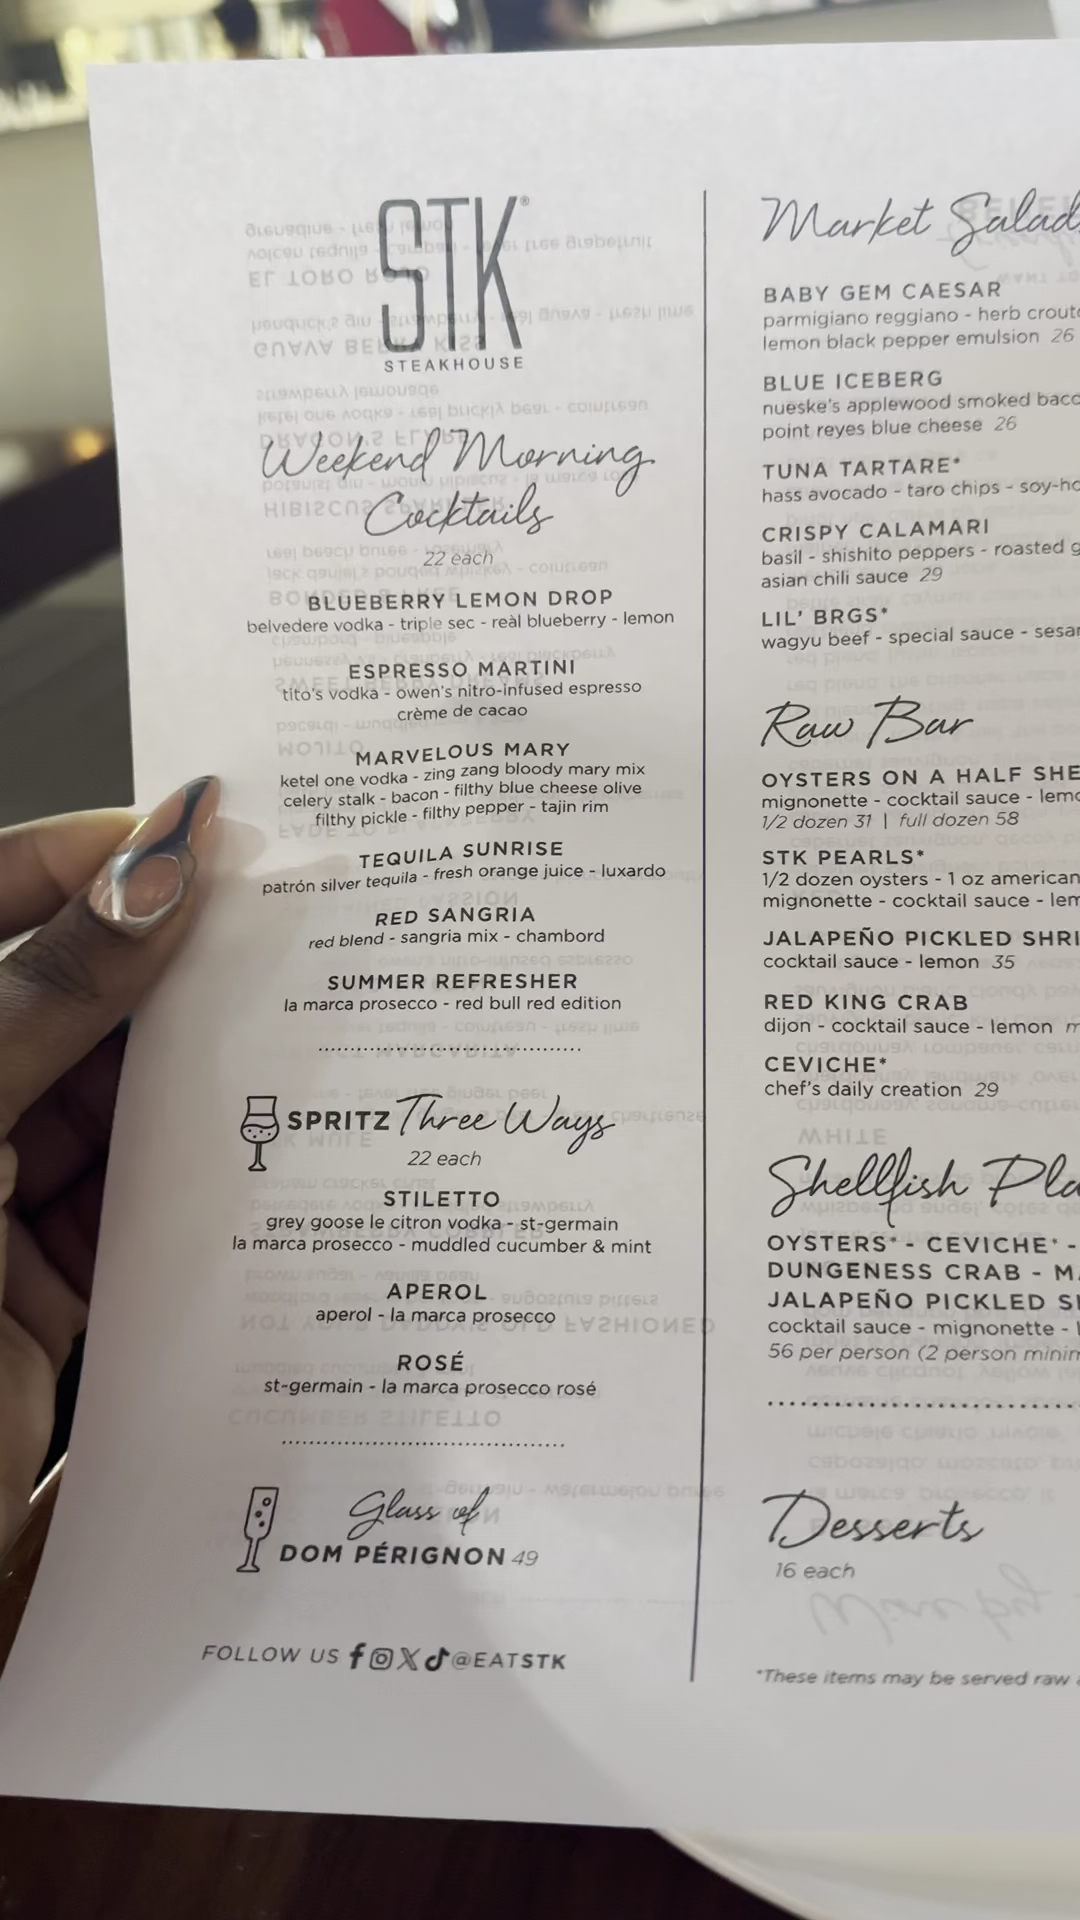 STK®
STEAKHOUSE
Weekend Morning
Cocktails
22 each
BLUEBERRY LEMON DROP
belvedere vodka - triple sec - reàl blueberry - lemon
ESPRESSO MARTINI
tito's vodka - owen's nitro-infused espresso
crème de cacao
MARVELOUS MARY
ketel one vodka - zing zang bloody mary mix
celery stalk - bacon - filthy blue cheese olive
filthy pickle - filthy pepper - tajin rim
TEQUILA SUNRISE
patrón silver tequila - fresh orange juice - luxardo
RED SANGRIA
red blend - sangria mix - chambord
SUMMER REFRESHER
la marca prosecco - red bull red edition
SPRITZ Three Ways
22 each
STILETTO
grey goose le citron vodka - st-germain
la marca prosecco - muddled cucumber & mint
APEROL
aperol - la marca prosecco
ROSÉ
st-germain - la marca prosecco rosé
Glass of
DOM PÉRIGNON 49
FOLLOW US @EATSTK
Market Salad
BABY GEM CAESAR
parmigiano reggiano - herb
lemon black pepper emulsion 26
BLUE ICEBERG
nueske's applewood smoked
point reyes blue cheese 26
TUNA TARTARE*
hass avocado - taro chips -
CRISPY CALAMARI
basil - shishito peppers - roasted
asian chili sauce 29
LIL' BRGS*
wagyu beef - special sauce -
Raw Bar
OYSTERS ON A HALF
mignonette - cocktail sauce -
1/2 dozen 31 | full dozen 58
STK PEARLS*
1/2 dozen oysters - 1 oz american
mignonette - cocktail sauce -
JALAPEÑO PICKLED
cocktail sauce - lemon 35
RED KING CRAB
dijon - cocktail sauce - lemon
CEVICHE*
chef's daily creation 29
Shellfish
OYSTERS* - CEVICHE* -
DUNGENESS CRAB -
JALAPEÑO PICKLED
cocktail sauce - mignonette -
56 per person (2 person
Desserts
16 each
*These items may be served raw